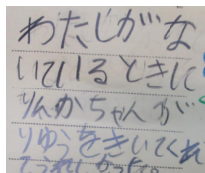 わたしがな
いているときに
りんかちゃんが
りゆうをきいてくれ
てうれしかった